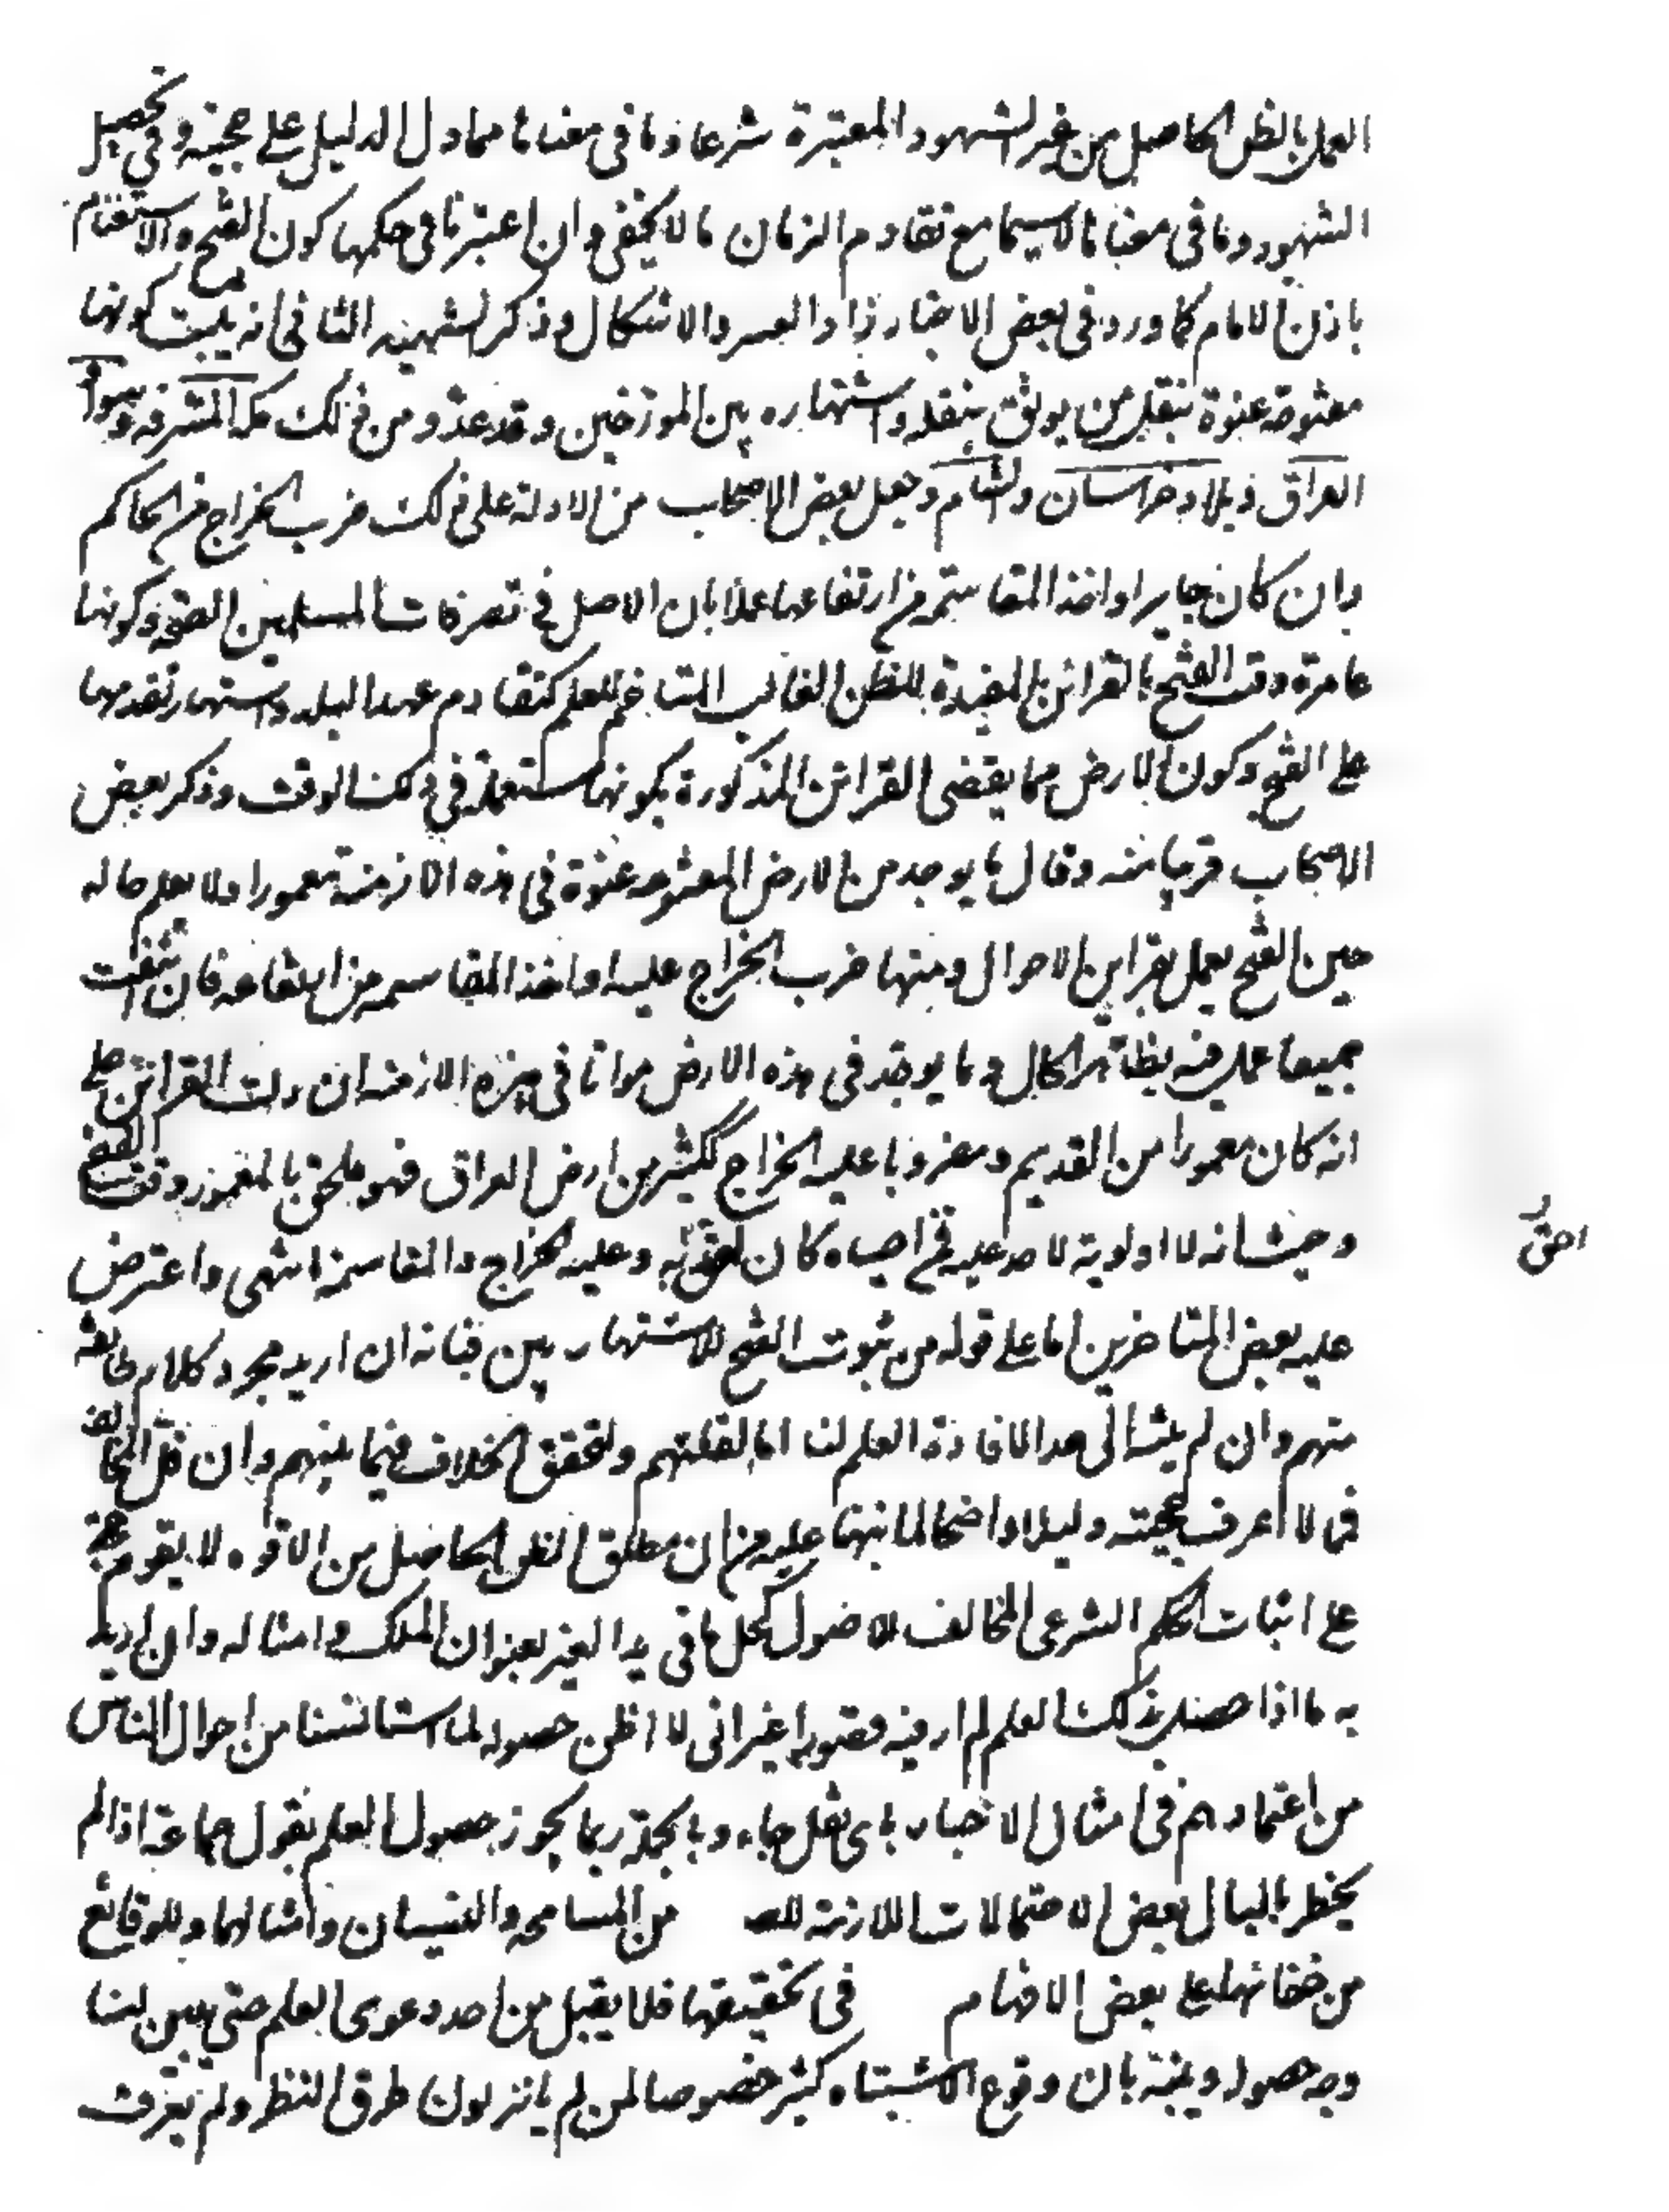 العمل بالظن الحاصل من غير الشهود المعتبرة شرعا وما في معناها مما دل الدليل على حجيته وفي تحصيل
الشهود وما في معناها لا سيما مع تقادم الزمان ما لا يخفى وان اعتبرنا في حكمها كون الفتح والاستغنام
باذن الامام كما ورد في بعض الاخبار زاد العسر والاشكال وذكر الشهيد الثاني انه يثبت كونها
مفتوحة عنوة بنقل من يوثق بنقله واشتهاره بين المورخين وقد عدوا من ذلك مكة المشرفة وسواد
العراق وبلاد خراسان والشام وجعل بعض الاصحاب من الادلة على ذلك ضرب الخراج من الحاكم
وان كان جايرا واخذ المقاسمة من ارتفاعها عملا بان الاصل في تصرفات المسلمين الصحة وكونها
عامرة وقت الفتح بالقرائن المفيدة للظن الغالب المتاخم للعلم كتقادم عهد البلد واشتهار تقدمها
على الفتح وكون الارض مما يقضى القرائن المذكورة بكونها مستعملة في ذلك الوقت وذكر بعض
الاصحاب قريبا منه وقال ما يوجد من الارض المفتوحه عنوة في هذه الازمنة معمورا ولا يعلم حاله
حين الفتح يعمل بقراين الاحوال ومنها ضرب الخراج عليه او اخذ المقاسمه من ارتفاعه فان انتفت
جميعا عمل فيه بظاهر الحال وما يوجد في هذه الارض مواتا في هذه الازمنة ان دلت القرائن على
انه كان معمورا من القديم ومضروبا عليه الخراج ككثير من ارض العراق فهو ملحق بالمعمور وقت الفتح
وحيث انه لا اولوية لاحد عليه فمن احياه كان احق به وعليه الخراج والمقاسمة انتهى واعترض
احق
عليه بعض المتاخرين اما على قوله من ثبوت الفتح للاشتهار بين فبانه ان اريد مجرد كلام طائفة
منهم وان لم يبلغ الى حد الافادة العلم لنا اما لقلتهم ولتحقق الخلاف فيما بينهم وان قل المخالف
فما لا اعرف لحجيته دليلا واضحا لما نبهنا عليه من ان مطلق الظن الحاصل من الافواه لا يقوم حجة
على اثبات الحكم الشرعي المخالف للاصول كحل ما في يد الغير بعنوان الملك وامثاله وان اريد
به ما اذا حصل بذلك العلم لم ار فيه قصورا غير اني لا اظن حصوله لما استانسنا من احوال الناس
من اعتمادهم في امثال الاخبار باى نقل جاء وبالجملة ربما يجوز حصول العلم بقول جماعة اذا لم
يخطر بالبال بعض الاحتمالات اللازمة من المسامحه والنسيان وامثالهما وللوقائع
من خفائها على بعض الافهام في تحقيقها فلا يقبل من احد دعوى العلم حتى يبين لنا
وجه حصوله وينبه بان وقوع الاشتباه كثير خصوصا لمن لم يانزلون طرق النظر ولم يعرف